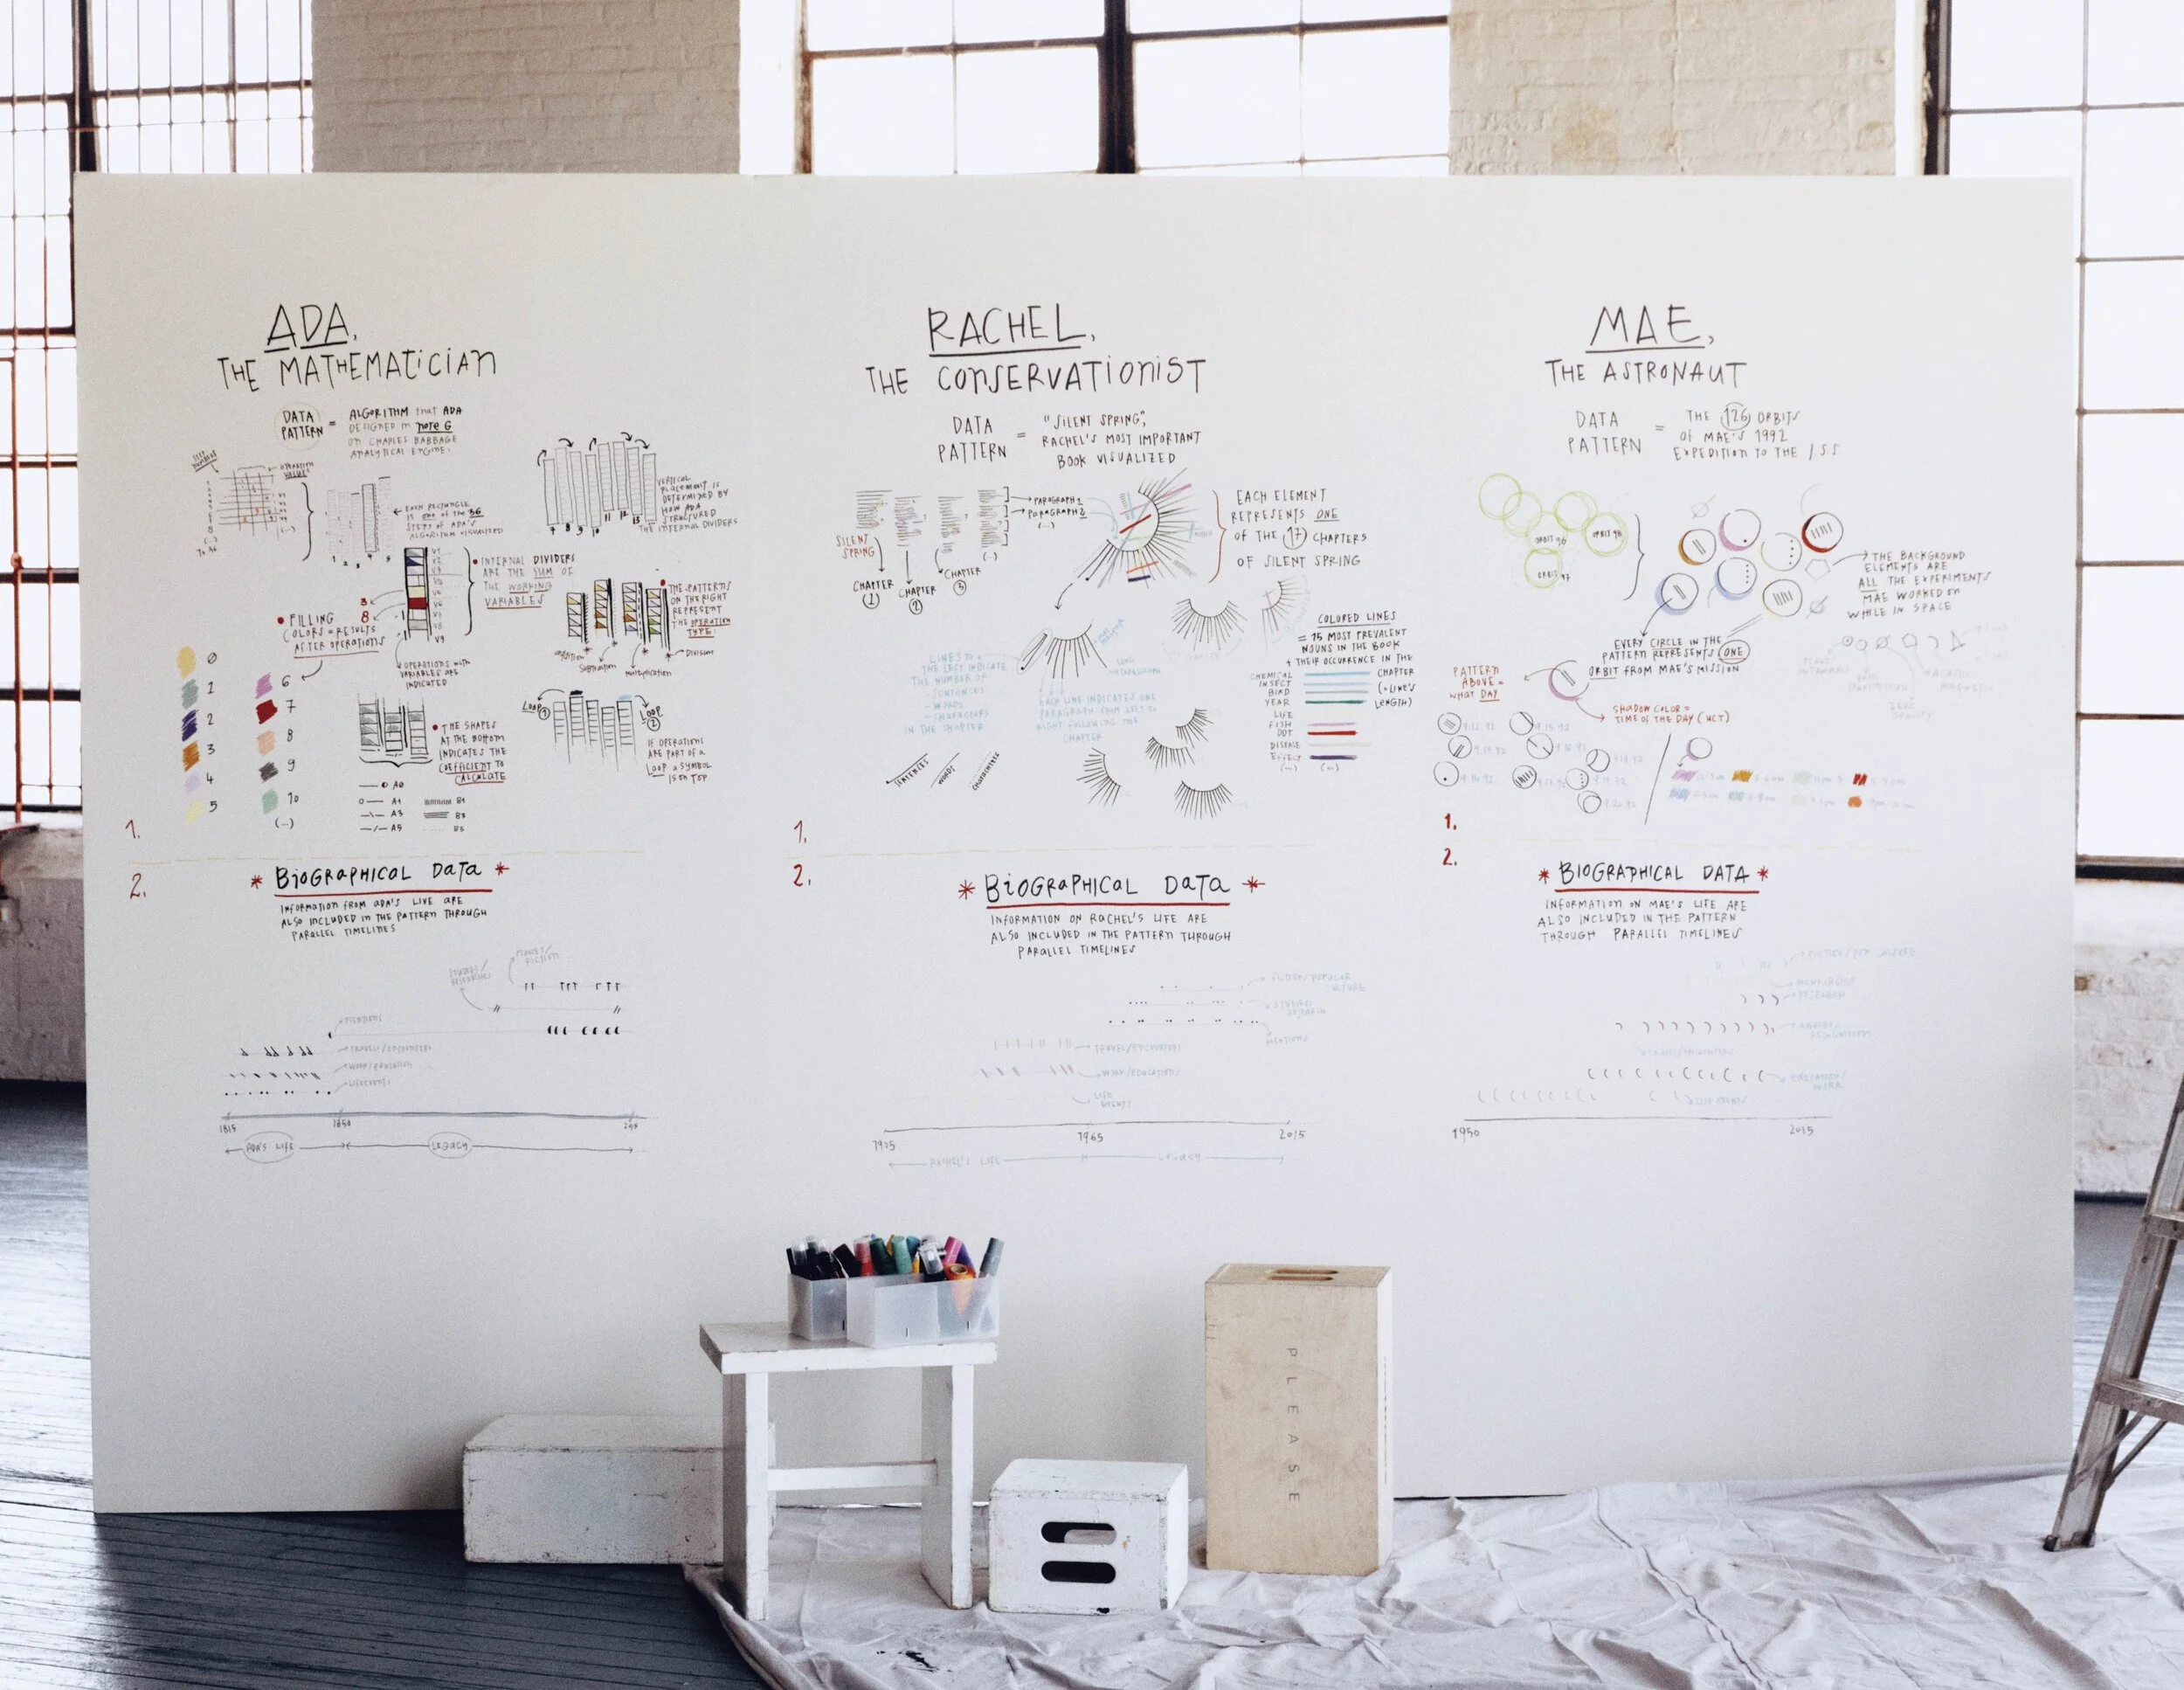 ADA,
THE MATHEMATICIAN
DATA
PATTERN =
ALGORITHM that ADA
DESIGNED in note G
on CHARLES BABBAGE
ANALYTICAL ENGINE:
OPERATION
VALUES
EACH RECTANGLE
is one of the
STEPS of ADA'S
ALGORITHM VISUALIZED
VERTICAL
PLACEMENT IS
DETERMINED BY
HOW ADA
STRUCTURED
THE INTERNAL DIVIDERS
INTERNAL DIVIDERS
ARE THE SUM OF
THE WORKING
VARIABLES
V1
V2
V3
V9
FILLING
COLORS = RESULTS
AFTER OPERATIONS
OPERATIONS with
VARIABLES ARE
INDICATED
THE PATTERNS
ON THE RIGHT
REPRESENT
THE OPERATION
TYPE:
Subtraction
multiplication
Division
0
1
2
3
4
5
6
7
8
9
10
(...)
THE SHAPES
AT THE BOTTOM
INDICATES THE
COEFFICIENT TO
CALCULATE
A0
A1
A3
A5
B1
B3
B5
LOOP 1
LOOP 2
IF OPERATIONS
ARE PART OF A
LOOP A SYMBOL
IS ON TOP
1.
2.
* BIOGRAPHICAL DATA *
INFORMATION FROM ADA'S LIVE ARE
ALSO INCLUDED IN THE PATTERN THROUGH
PARALLEL TIMELINES
STUDIES/
MENTIONS
TRAVELS/ENCOUNTERS
WORK/EDUCATION
LIFE EVENTS
1815
1850
ADA'S LIFE
LEGACY
RACHEL,
THE CONSERVATIONIST
DATA
PATTERN =
"SILENT SPRING",
RACHEL'S MOST IMPORTANT
BOOK VISUALIZED
SILENT
SPRING
PARAGRAPH 1
PARAGRAPH 2
(...)
CHAPTER
1
CHAPTER
2
CHAPTER
3
EACH ELEMENT
REPRESENTS ONE
OF THE 17 CHAPTERS
OF SILENT SPRING
LINES TO
THE LEFT INDICATE
THE NUMBER OF
- SENTENCES
- WORDS
- CHARACTERS
IN THE CHAPTER
EACH LINE INDICATES ONE
PARAGRAPH FROM LEFT TO
RIGHT FOLLOWING THE
CHAPTER
SENTENCES
WORDS
CHARACTERS
COLORED LINES
= 15 MOST PREVALENT
NOUNS IN THE BOOK
+ THEIR OCCURRENCE IN THE
CHAPTER
(= LINE'S
LENGTH)
CHEMICAL
INSECT
BIRD
YEAR
LIFE
FISH
DDT
DISEASE
EFFECT
(...)
(...)
1.
2.
* BIOGRAPHICAL DATA *
INFORMATION ON RACHEL'S LIFE ARE
ALSO INCLUDED IN THE PATTERN THROUGH
PARALLEL TIMELINES
FICTION/POPULAR
CULTURE
MENTIONS
TRAVEL/ENCOUNTERS
WORK/EDUCATIONS
LIFE
EVENTS
1905
1965
2015
RACHEL'S LIFE
LEGACY
MAE,
THE ASTRONAUT
DATA
PATTERN =
THE 126 ORBITS
OF MAE'S 1992
EXPEDITION TO THE I.S.S
ORBIT 96
ORBIT 98
ORBIT 97
THE BACKGROUND
ELEMENTS ARE
ALL THE EXPERIMENTS
MAE WORKED ON
WHILE IN SPACE
EVERY CIRCLE IN THE
PATTERN REPRESENTS ONE
ORBIT FROM MAE'S MISSION
PATTERN
ABOVE =
WHAT DAY
SHADOW COLOR =
TIME OF THE DAY (UCT)
9.12.92
9.14.92
1.
2.
* BIOGRAPHICAL DATA *
INFORMATION ON MAE'S LIFE ARE
ALSO INCLUDED IN THE PATTERN
THROUGH PARALLEL TIMELINES
FICTION/POP CULTURE
RESEARCH
AWARDS/
RECOGNITION
EDUCATION/
WORK
LIFE EVENTS
1950
2015
PLEASE